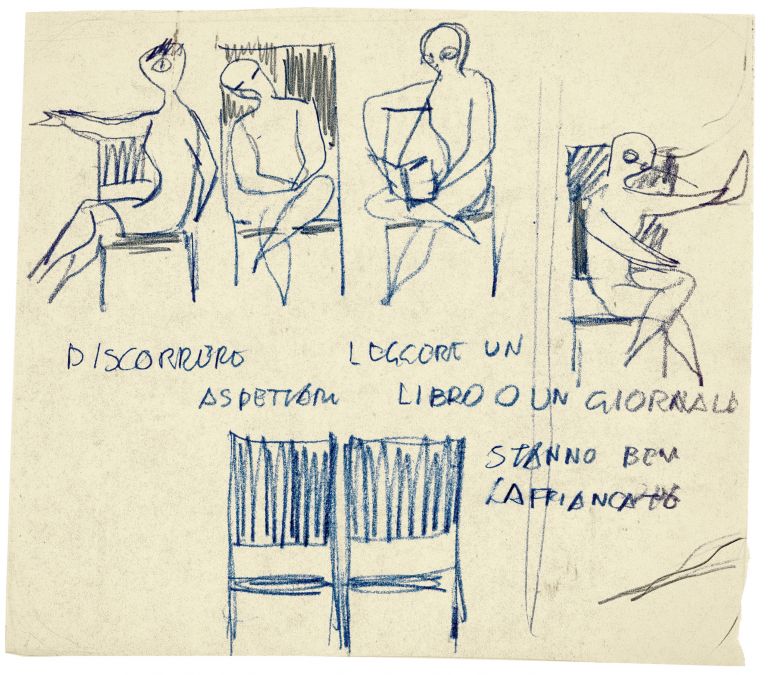 DISCORRERE
LEGGERE UN
ASPETTARE
LIBRO O UN GIORNALE
STANNO BENE
AFFIANCATE